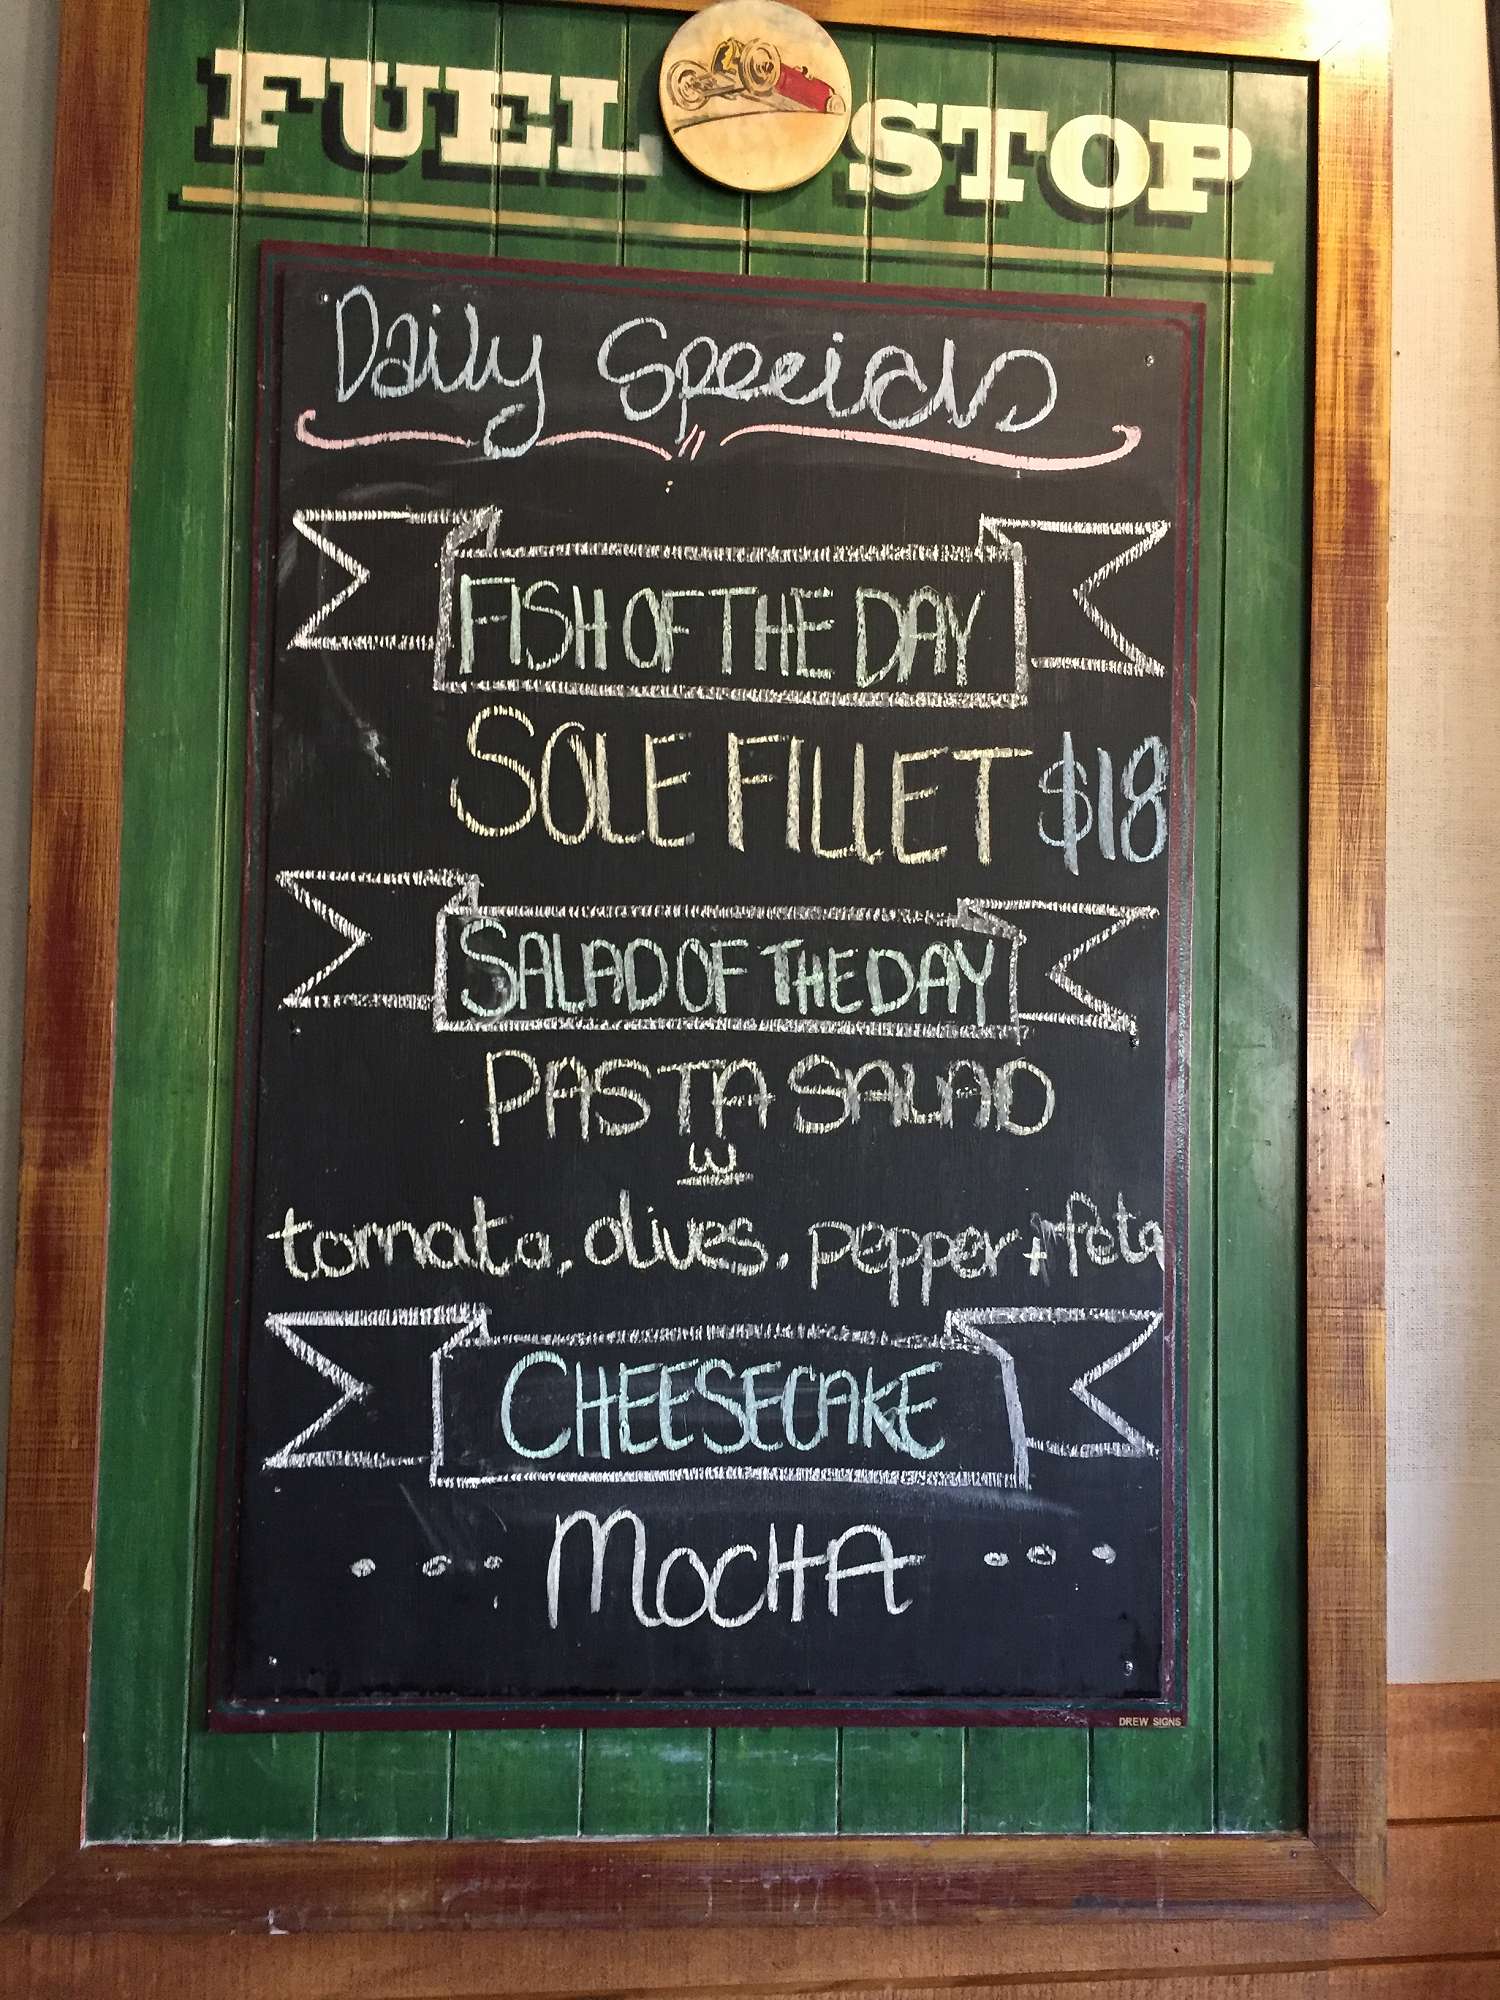 FUEL STOP
Daily Specials
FISH OF THE DAY
SOLE FILLET $18
SALAD OF THE DAY
PASTA SALAD
w
tomato, olives, pepper + feta
CHEESECAKE
MOCHA
DREW SIGNS